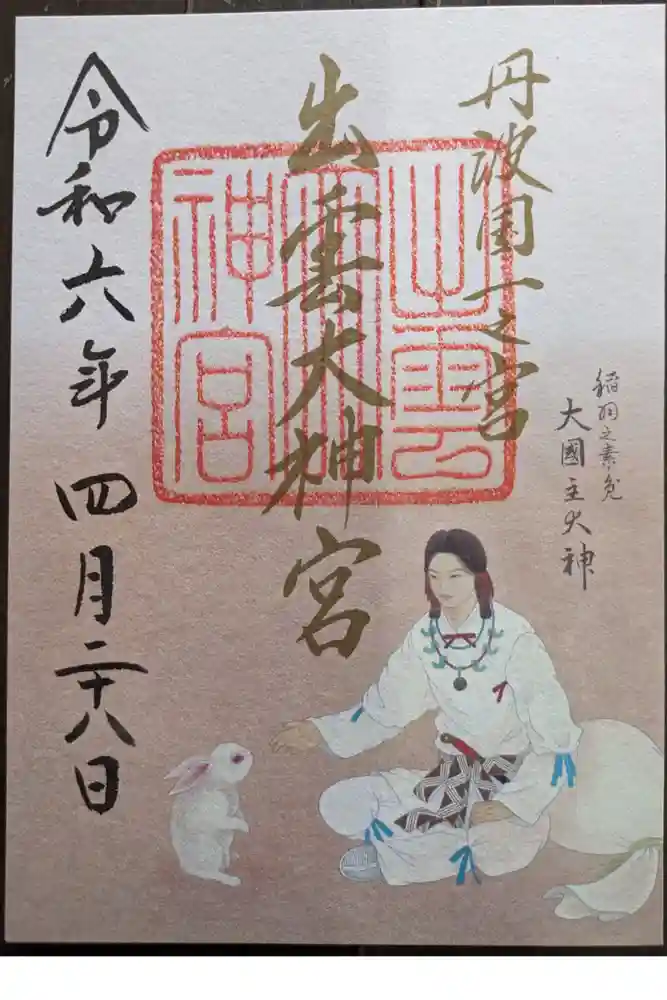 丹波国一之宮
稲羽之素兎
大國主大神
出雲大神宮
出雲大神宮
令和六年四月二十八日